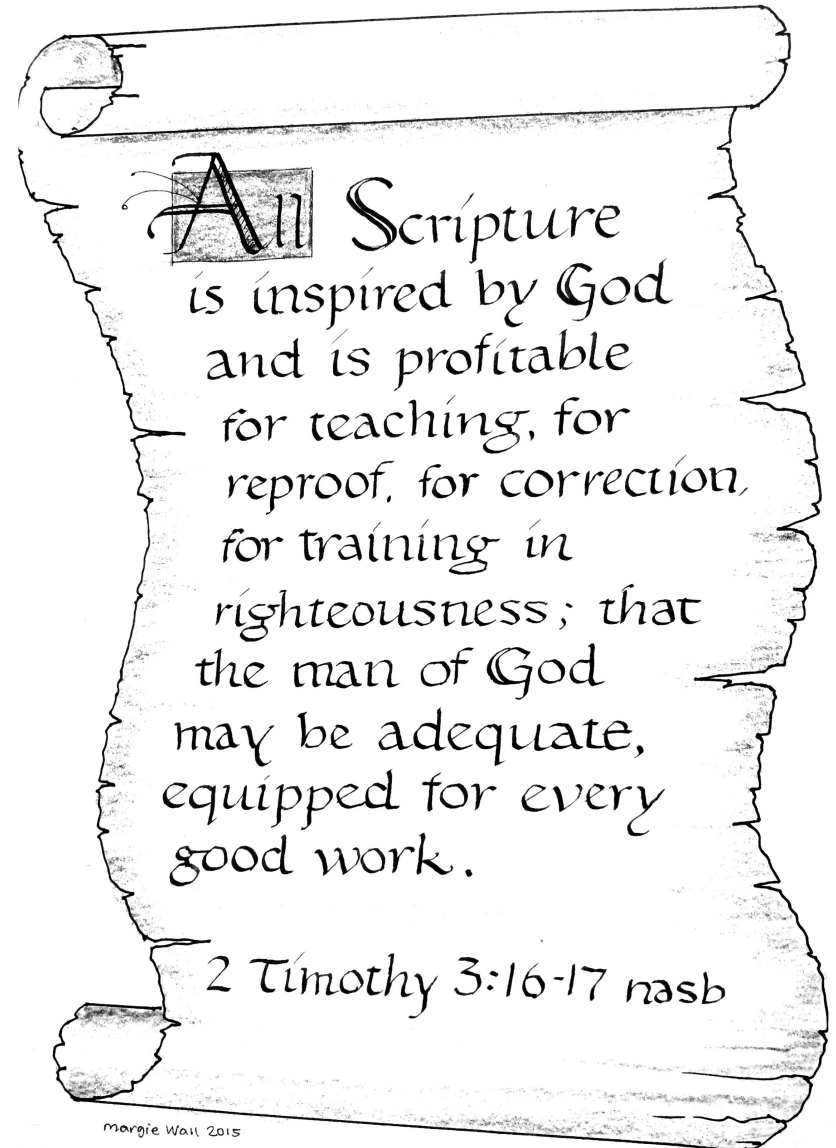 All Scripture
is inspired by God
and is profitable
for teaching, for
reproof, for correction,
for training in
righteousness; that
the man of God
may be adequate,
equipped for every
good work.
2 Timothy 3:16-17 nasb
Margie Wall 2015